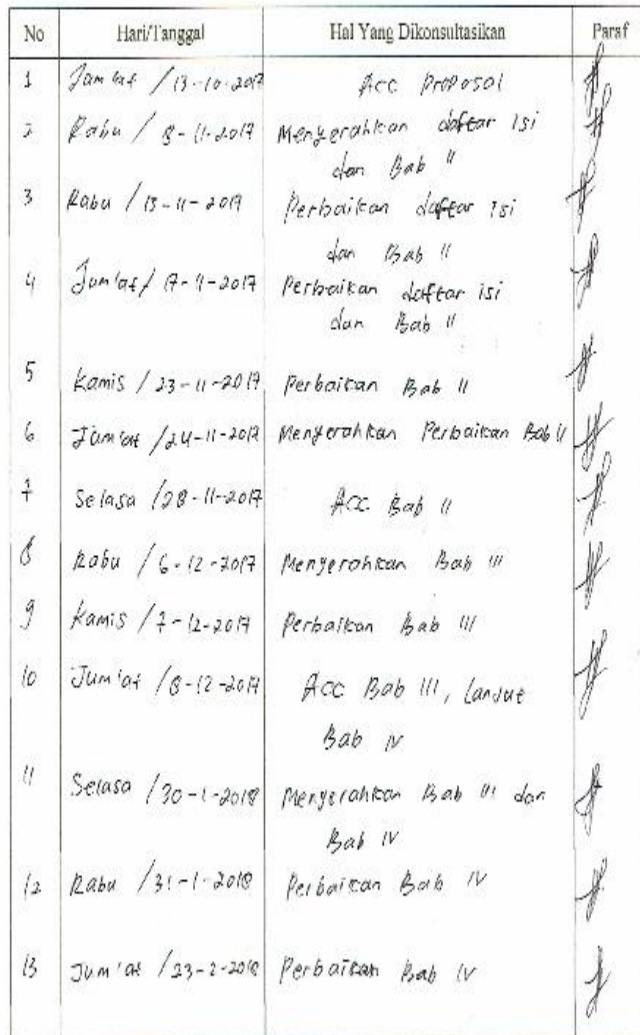 No Hari/Tanggal Hal Yang Dikonsultasikan Paraf
1 Jum'at / 13-10-2017 Acc Proposal
2 Rabu / 8-11-2017 Menyerahkan daftar isi
dan Bab II
3 Rabu / 15-11-2017 Perbaikan daftar isi
dan Bab II
4 Jum'at / 17-11-2017 Perbaikan daftar isi
dan Bab II
5 Kamis / 23-11-2017 Perbaikan Bab II
6 Jum'at / 24-11-2017 Menyerahkan Perbaikan Bab II
7 Selasa / 28-11-2017 Acc Bab II
8 Rabu / 6-12-2017 Menyerahkan Bab III
9 Kamis / 7-12-2017 Perbaikan Bab III
10 Jum'at / 8-12-2017 Acc Bab III, Lanjut
Bab IV
11 Selasa / 30-1-2018 Menyerahkan Bab III dan
Bab IV
12 Rabu / 31-1-2018 Perbaikan Bab IV
13 Jum'at / 23-2-2018 Perbaikan Bab IV